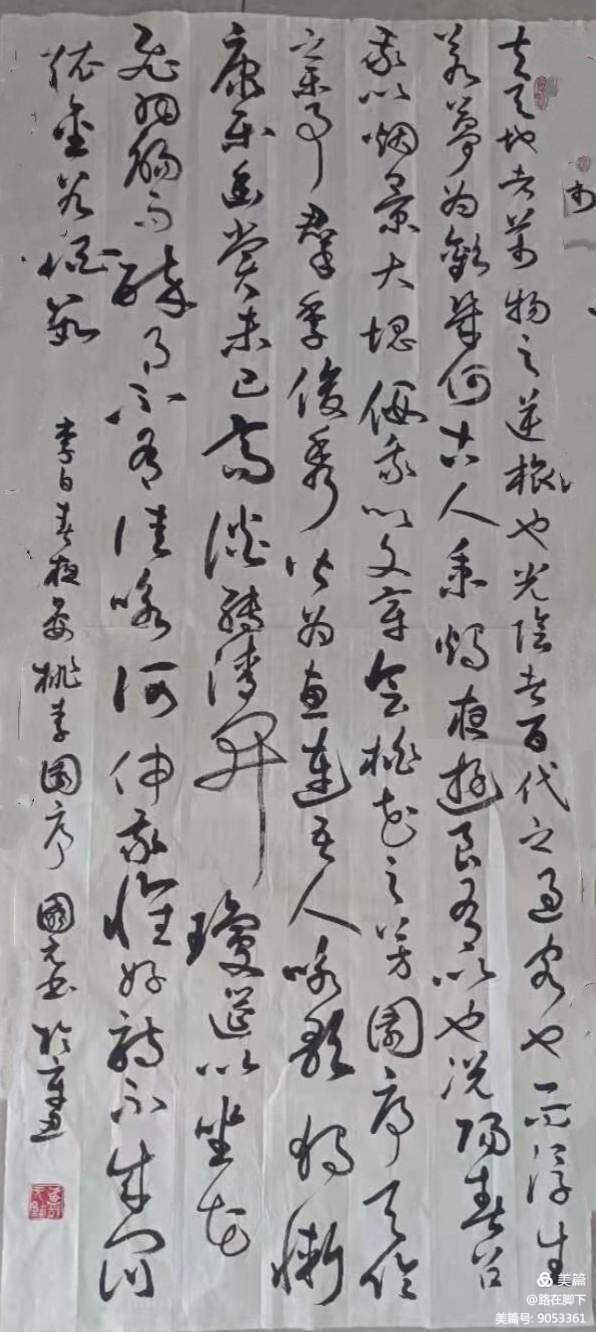 夫天地者萬物之逆旅也光陰者百代之過客也而浮生
若夢為歡幾何古人秉燭夜遊良有以也況陽春召
我以烟景大塊假我以文章會桃花之芳園序天倫
之樂事群季俊秀皆為惠連吾人咏歌独慚
康樂幽賞未已高談轉清開瓊筵以坐花
飛羽觞而醉月不有佳咏何伸雅懷如詩不成罰
依金谷酒數
李白春夜宴桃李園序 國元书於
美篇
@路在脚下
美篇号: 9053361